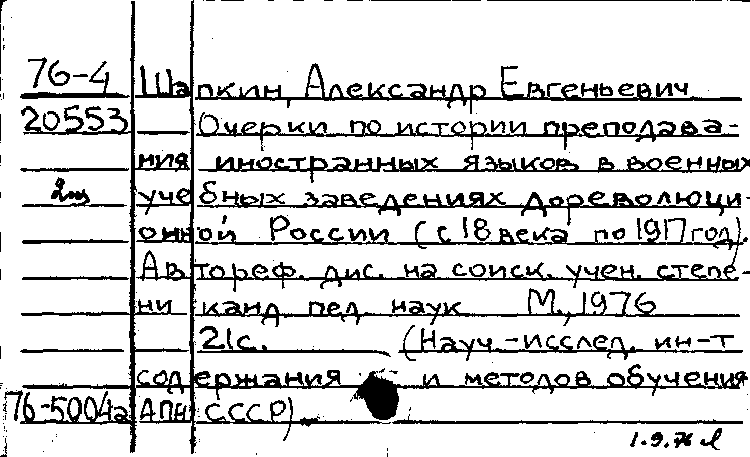 76-4 Шапкин, Александр Евгеньевич
20553 Очерки по истории препoдава-
ния иностранных языков в военных
2ш учебных заведениях дореволюци-
онной России (с 18 века по 1917 год).
Автореф. дис. на соиск. учен. степе-
ни канд. пед. наук М., 1976
21с. (Науч.-исслед. ин-т
содержания и методов обучения
76-5004а АПН СССР)
1.9.76